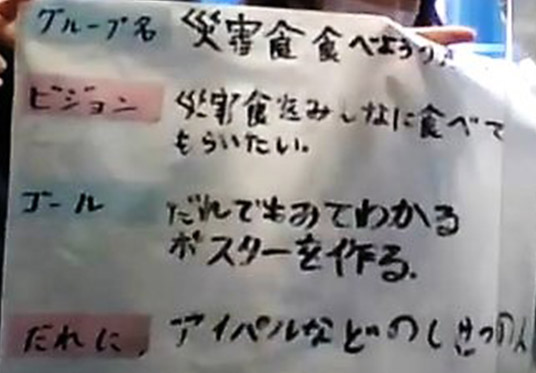 グループ名 災害食食べよう
ビジョン 災害食をみんなに食べて
もらいたい。
ゴール だれでもみてわかる
ポスターを作る。
だれに、 アイパルなどのしせつの人